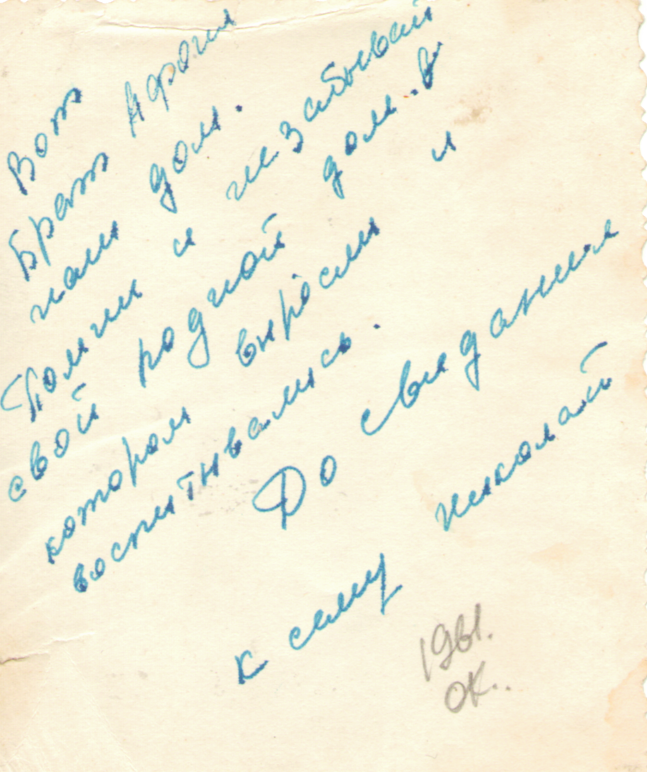 Вот
Брат Афоня
наш дом.
Помни и незабывай
свой родной дом. в
котором выросли и
воспитывались.
До свидания
к сему Николай
1961.
ок..